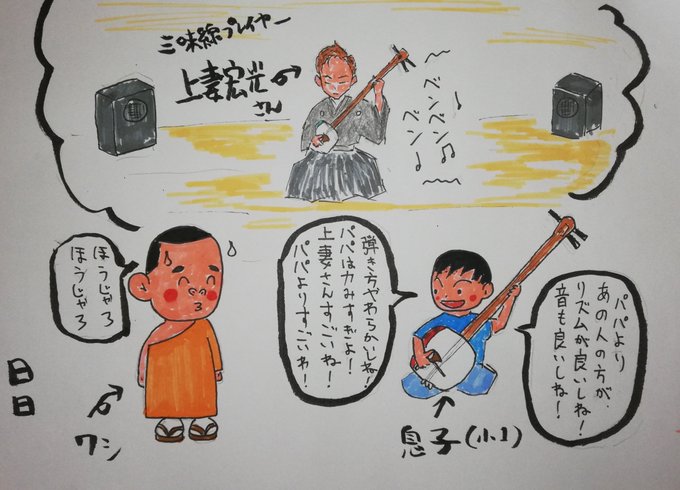 三味線プレイヤー
上妻宏光
さん
ベンベン♫
ベン♩
パパより
あの人の方が、
リズムが良いしね!
音も良いしね!
弾き方やわらかいしね!
パパは力みすぎよ!
上妻さんすごいね!
パパよりすごいわ!
ほうじゃろ
ほうじゃろ
息子(小1)
ワシ
日
日